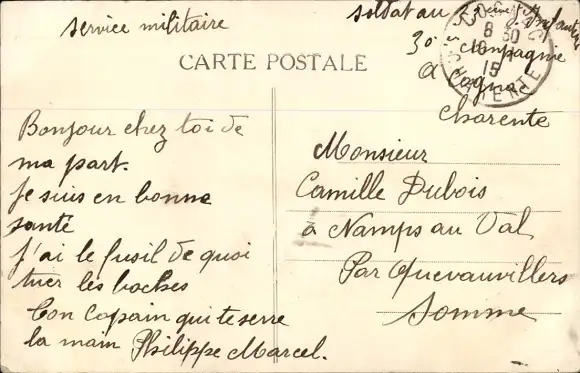 service militaire
soldat au
30
compagnie
à Cognac
Charente
CARTE POSTALE
COGNAC
8 30
15
CHARENTE
Bonjour chez toi de
ma part.
Je suis en bonne
santé
J'ai le fusil de quoi
tuer les boches
Ton Copain qui te serre
la main Philippe Marcel.
Monsieur
Camille Dubois
à Namps au Val
Par Quevauvillers
Somme